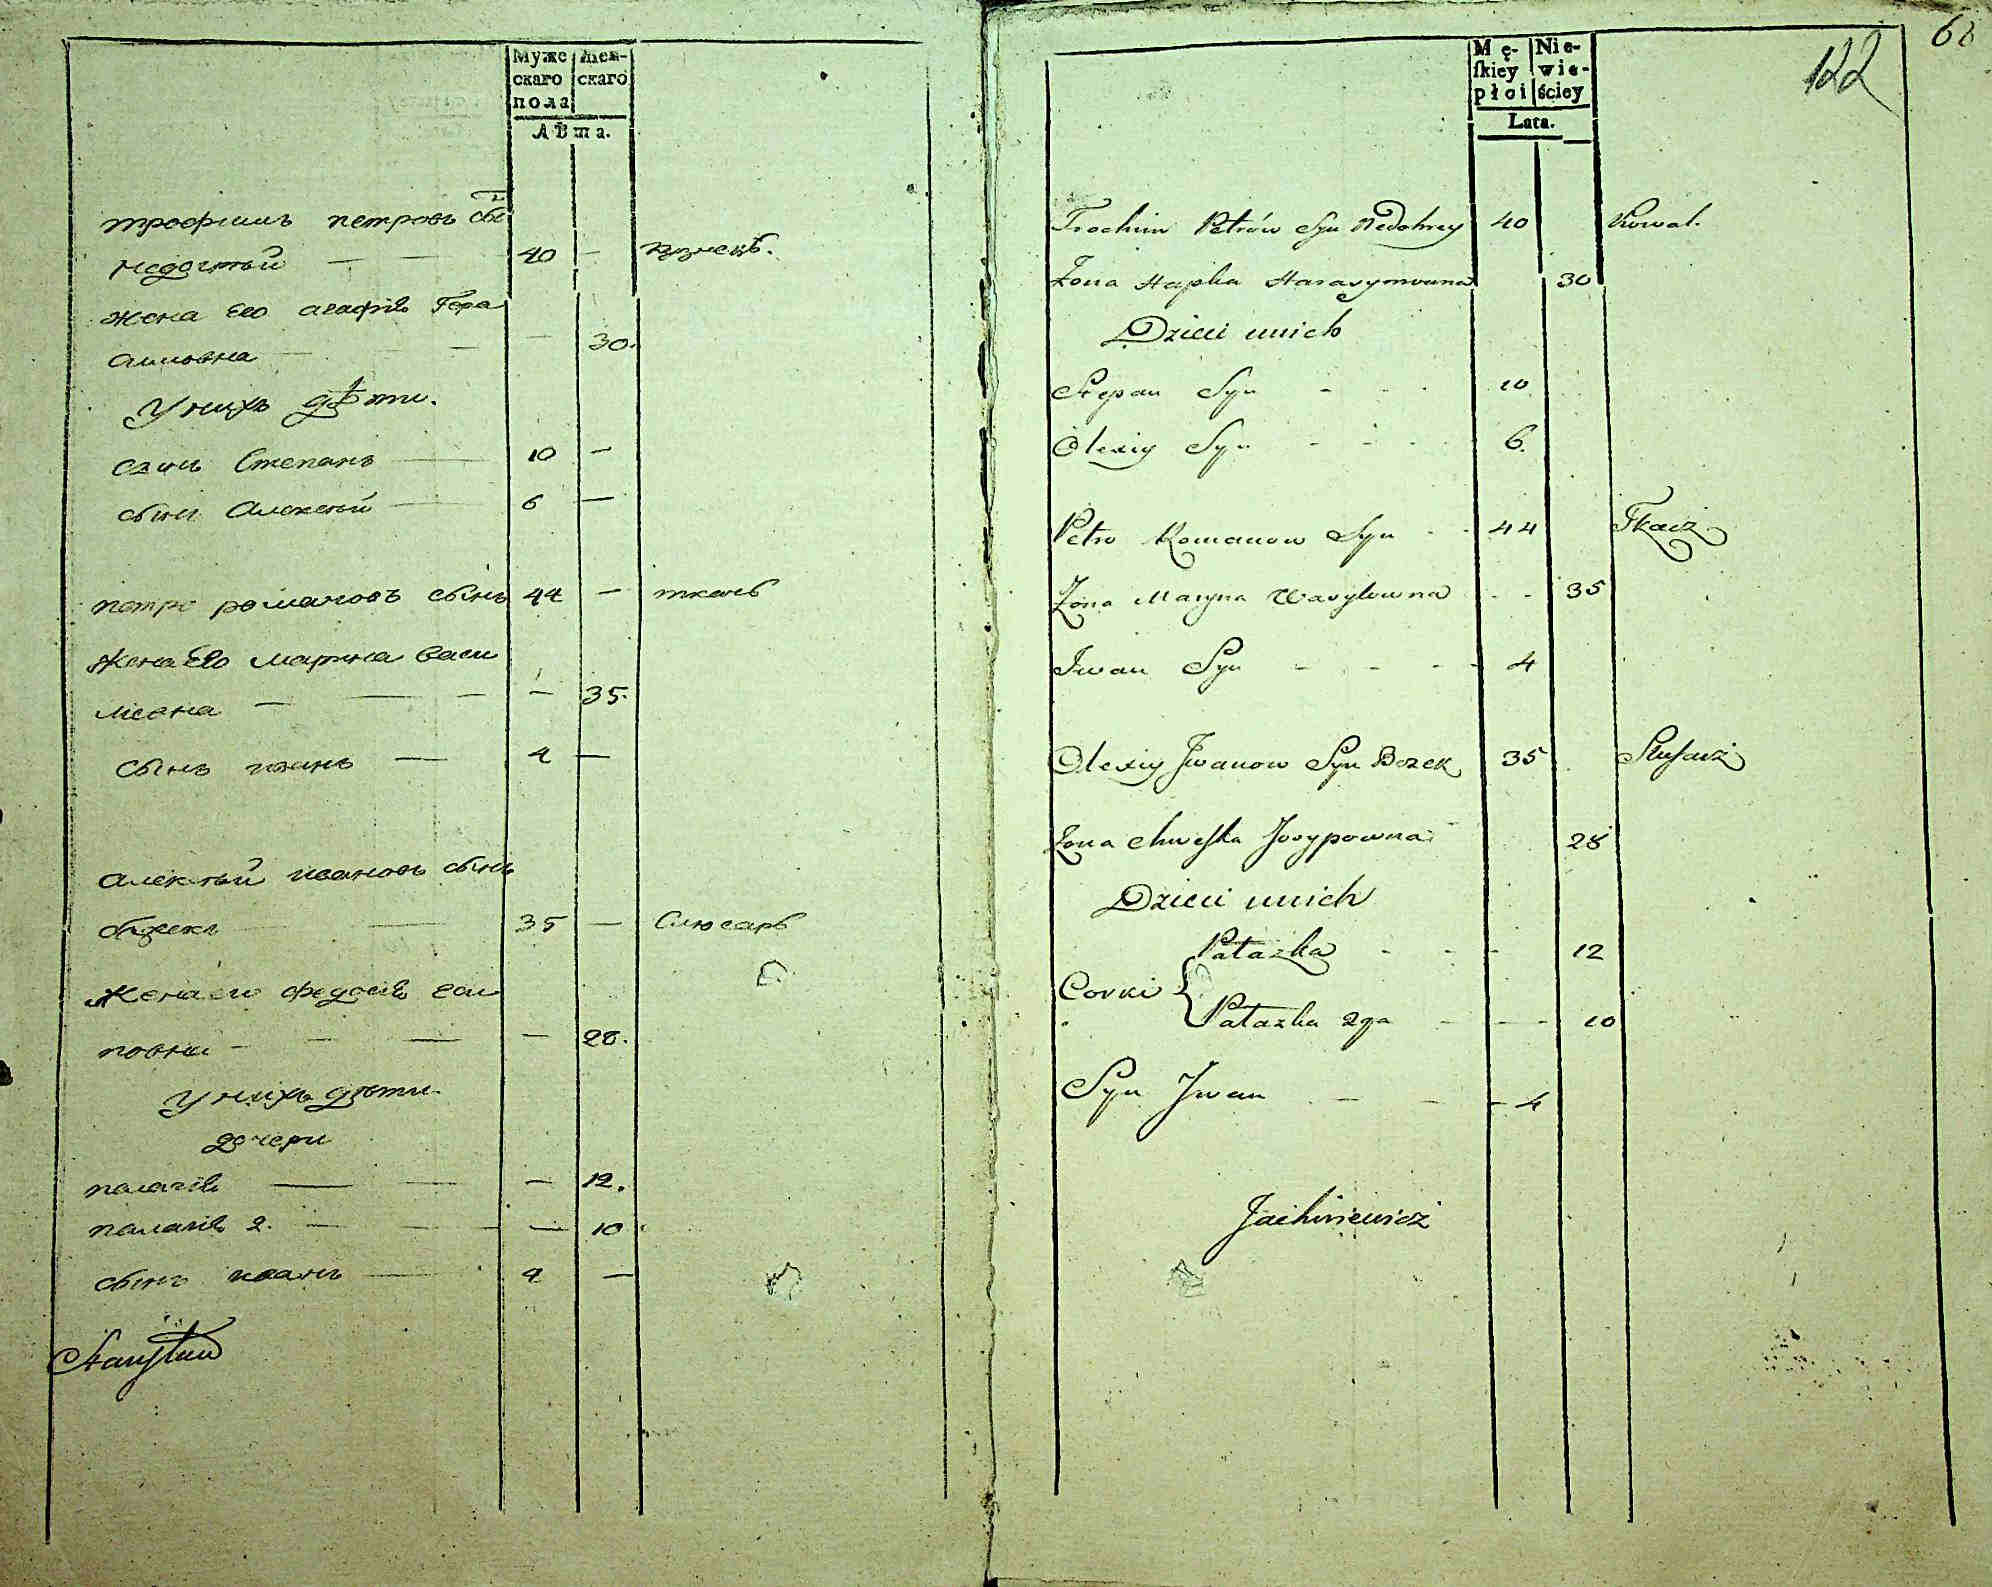 Муже Жен-
скаго скаго
пола
Лѣта.
трофимъ петровъ сы
недогтый — — 40 — кузнецъ.
жена Его агафія Гера
симовна — — — 30.
У нихъ дѣти.
сынъ Степанъ — 10 —
сынъ Алексей — 6 —
петро романовъ сынъ 44 — ткачь
жена Его марина васи
лѣвна — — — — 35.
сынъ иванъ — 4 —
алексѣй ивановъ сынъ
— — 35 — Слюсарь
жена его федосія
повна — — — — 28.
У нихъ дѣти
дочери
палагія — — — 12.
палагія 2. — — — 10
сынъ иванъ — 4 —
68
122
Mę- Nie-
skiey wie-
płci ściey
Lata.
Trochim Petrów Syn 40 Kowal.
Żona Hapka Harasymowna 30
Dzieci unich
Stepan Syn - - 10
Olexiy Syn - - - 6.
Petro Romanow Syn - - 44 Tkacz
Żona Maryna Wasylowna - - 35
Iwan Syn - - - - 4
Olexiy Iwanow Syn Bozek 35 Slusarz
Żona Chweska Josypowna 28
Dzieci unich
Pałazka - - - 12
Corki {
Pałazka 2ga - - - 10
Syn Iwan - - - 4